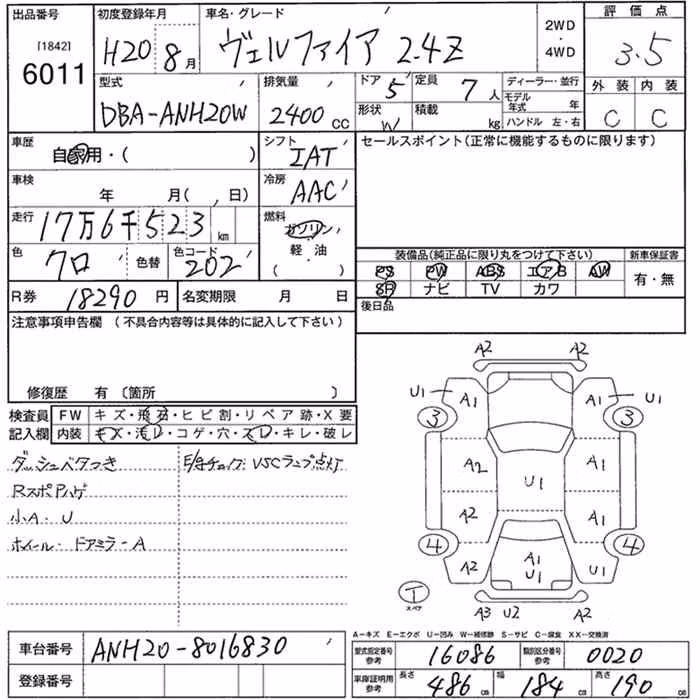 出品番号 初度登録年月 車名・グレード 2WD・4WD 評価点
[1842]
6011 H20 8月 ヴェルファイア 2.4Z 3.5
型式 排気量 ドア 5 定員 7人 ディーラー・並行 外装 内装
DBA-ANH20W 2400cc 形状 W 積載 kg モデル年式 年 C C
ハンドル 左・右
車歴 自家用・( ) シフト IAT セールスポイント(正常に機能するものに限ります)
車検 年 月( 、日) 冷房 AAC
走行 17万6千523km 燃料 ガソリン
軽・油
・
( )
色 クロ 色替 色コード 202 装備品(純正品に限り丸をつけて下さい) 新車保証書
PS PW ABS エアB AW 有・無
SR ナビ TV カワ
R券 18290円 名変期限 月 日 後日品
注意事項申告欄 (不具合内容等は具体的に記入して下さい)
修復歴 有 〔箇所 〕
検査員 FW キズ・飛石・ヒビ割・リペア跡・X要
記入欄 内装 キズ・汚レ・コゲ・穴・スレ・キレ・破レ
ダッシュベタつき
VSCランプ点灯
RスポPハゲ
小A・U
ホイール・ドアミラーA
A2 A2
U1 A1 A1 U1
3 3
A2 A1
U1
A2 A1
4 4
A2 A1 U1 U1
T
スペア
A3 U2 A2
A-キズ E-エクボ U-凹み W-補修跡 S-サビ C-腐食 XX-交換済
車台番号 ANH20-8016830 型式指定番号 参考 16086 類別区分番号 参考 0020
登録番号 車庫証明用 参考 長さ 486cm 幅 184cm 高さ 190cm